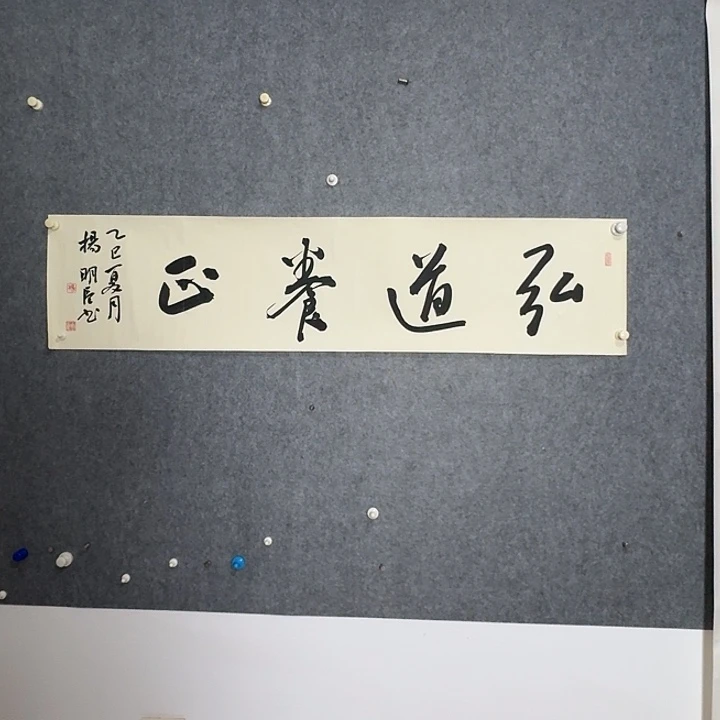 弘道養正
乙巳夏月
楊明臣书